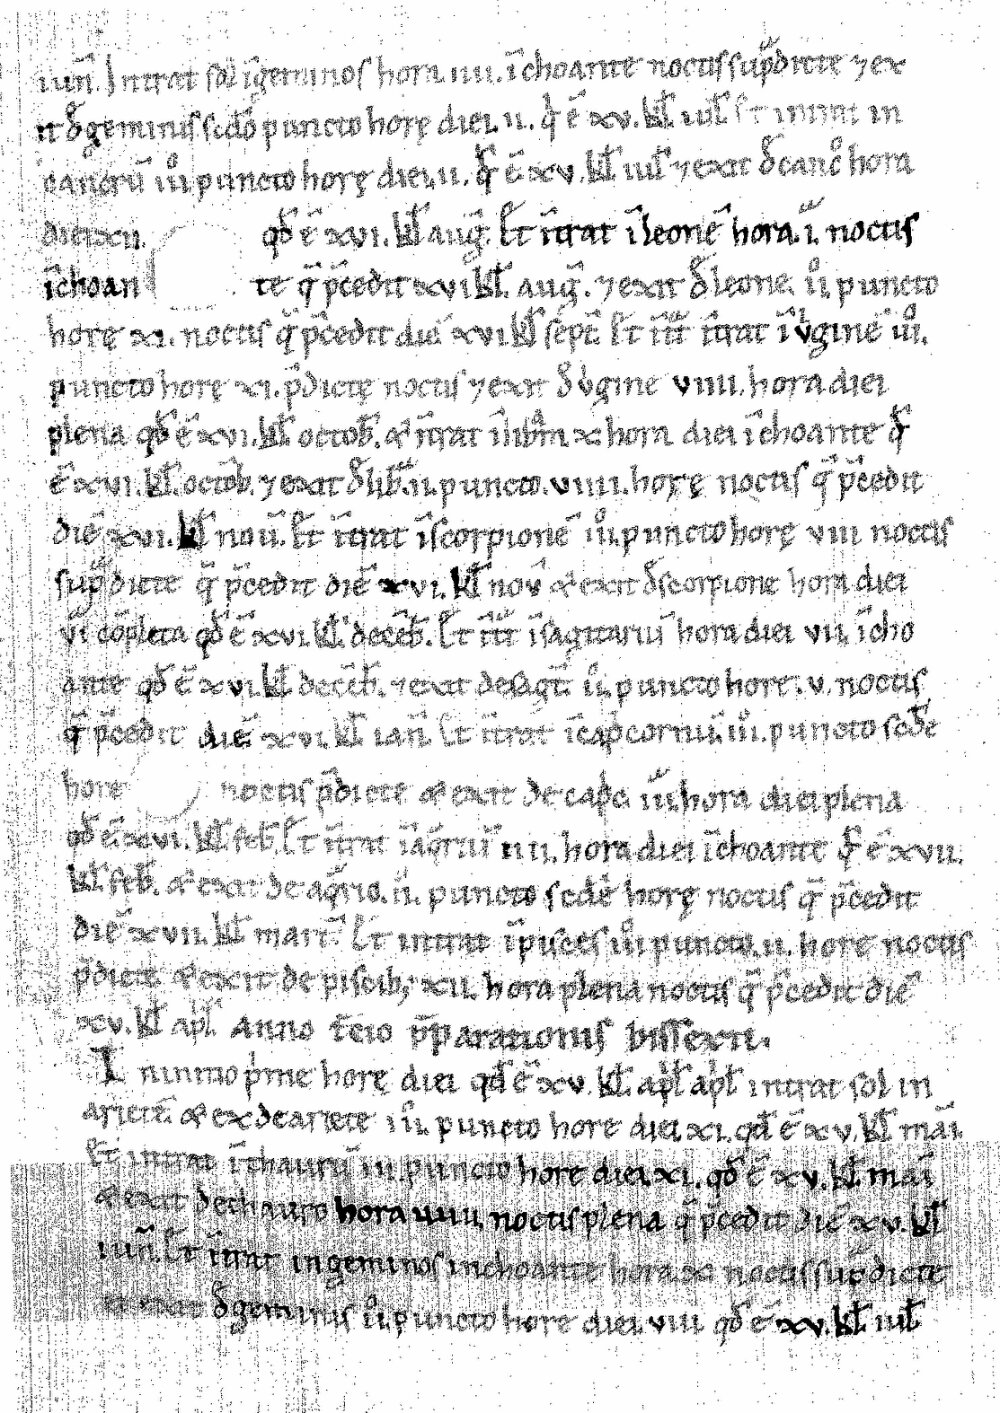 iun̄. Intrat sol īgeminos hora iiii. īchoante noctis sup̄dicte ⁊ ex
it d̄ geminis sc̄do puncto horę diei. ii. qd̄ ē xv. kl̄ iul̄ Et intrat in
cancrū iii puncto horę diei. ii. qd̄ ē xv. kl̄ iul̄ ⁊ exit d̄ canc̄ hora
diei xii. qd̄ ē xvi. kl̄ auḡ. Et īt̄rat ī leonē hora. i. noctis
īchoan te q̄ p̄cedit xvi kl̄. auḡ. ⁊ exit d̄ leone. ii. puncto
horę xi. noctis q̄ p̄cedit diē xvi. kl̄ sept̄. Et īt̄rat ī v̄ginē iii.
puncto horę xi. p̄dictę noctis ⁊ exit d̄ v̄gine viiii. hora diei
plena qd̄ ē xvi. kl̄ octob̄. & īt̄rat ī lib̄m x hora diei īchoante qd̄
ē xvi. kl̄. octob̄. ⁊ exit d̄ lib̄. ii. puncto. viiii. horę noctis q̄ p̄cedit
diē xvi. kl̄ nou̅. Et īt̄rat ī scorpionē iii. puncto horę viii noctis
sup̄dicte q̄ p̄cedit diē xvi. kl̄ nov̄ & exit d̄ scorpione hora diei
vi cōpleta qd̄ ē xvi. kl̄. decēb̄. Et īt̄ ī sagittariū hora diei vii. īcho
ante qd̄ ē xvi. kl̄ decēb̄. ⁊ exit de sagit̄. ii. puncto hore. v. noctis
q̄ p̄cedit diē xvi. kl̄ ian̄. Et īt̄rat ī cap̄cornū. iii. puncto sc̄de
hore noctis p̄dicte & exit de cap̄c̄. iii. hora diei plena
qd̄ ē. xvi. kl̄. feb̄. Et īt̄rat ī aq̄riū iiii. hora diei īchoante qd̄ ē xvii.
kl̄ feb̄. & exit de aq̄rio. ii. puncto sc̄dē horę noctis q̄ p̄cedit
diē xvii. kl̄ mart̄. Et intrat ī pisces iii puncto. ii. hore noctis
p̄dicte & exit de piscib; xii. hora plena noctis q̄ p̄cedit diē
xv. kl̄ apl̄ Anno t̄cio p̄parationis bissexti.
I ninitio p̄me horę diei qd̄ ē xv. kl̄. apl̄ apl̄ intrat sol in
arietē. & ex de ariete iii. puncto hore diei xi. qd̄ ē xv. kl̄ mai.
Et intrat ī thaurū iii. puncto hore diei xi. qd̄ ē xv. kl̄ mai
& exit de thauro hora iiiii. noctis plena q̄ p̄cedit diē xv. kl̄
iun̄. Et īt̄rat in geminos inchoante hora x noctis sup̄dicte
et exit d̄ geminis ii. puncto hore diei. viii qd̄ ē xv. kl̄ iul̄